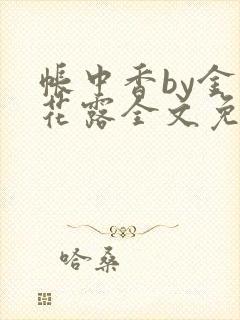 帐中香by金
花露全文免
哈桑